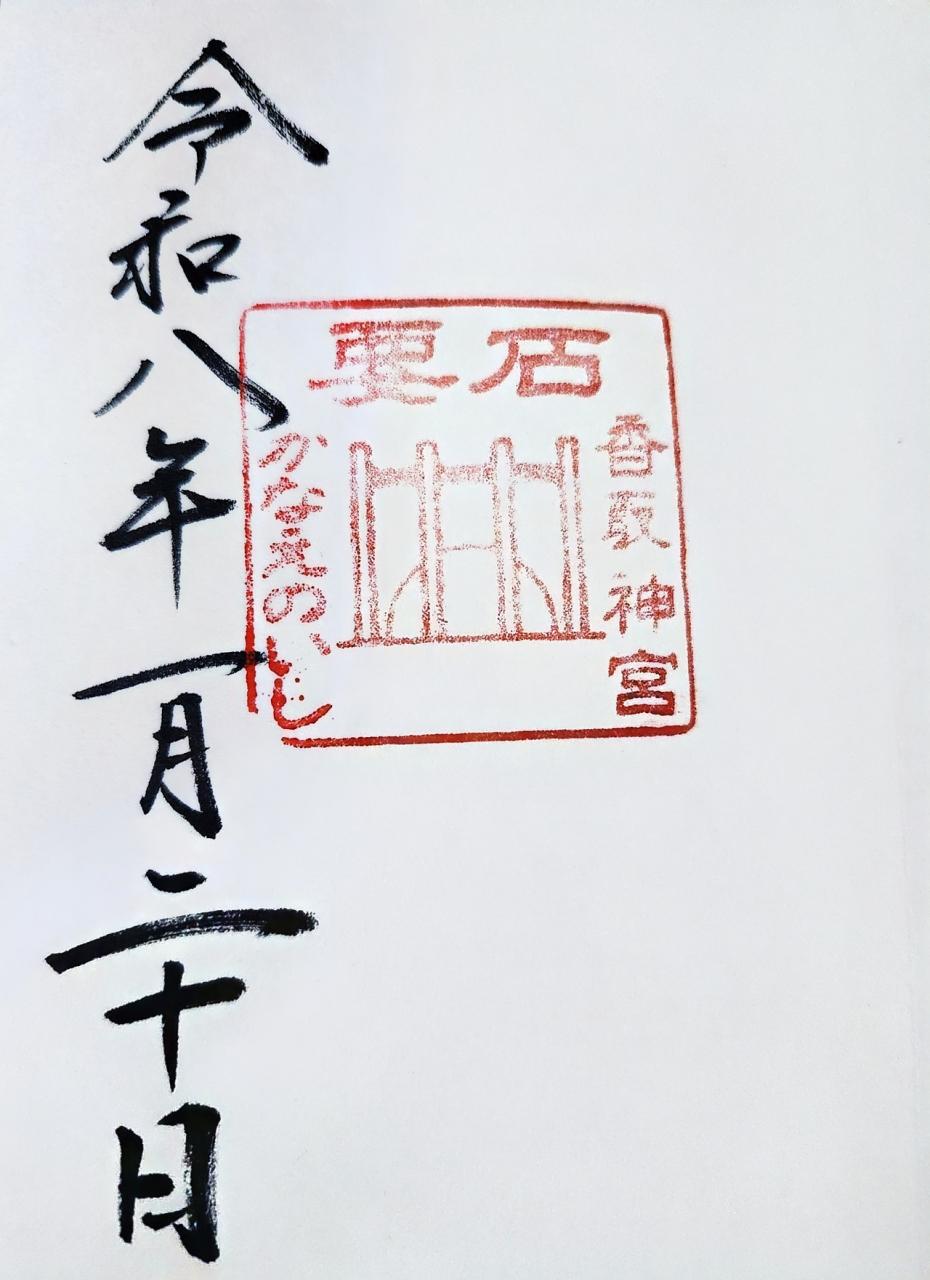 要石
香取神宮
かなえのいし
令和八年一月二十日